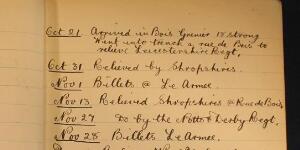 Oct 21 Arrived in Bois Grenier 18 strong
Went into trench @ rue de Bois to
relieve Leicestershire Regt.
Oct 31 Relieved by Shropshires.
Nov 1 Billets @ Le Armee.
Nov 13 Relieved Shropshires @ Rue de Bois.
Nov 27 Do by the Notts & Derby Regt.
Nov 28 Billets Le Armee.